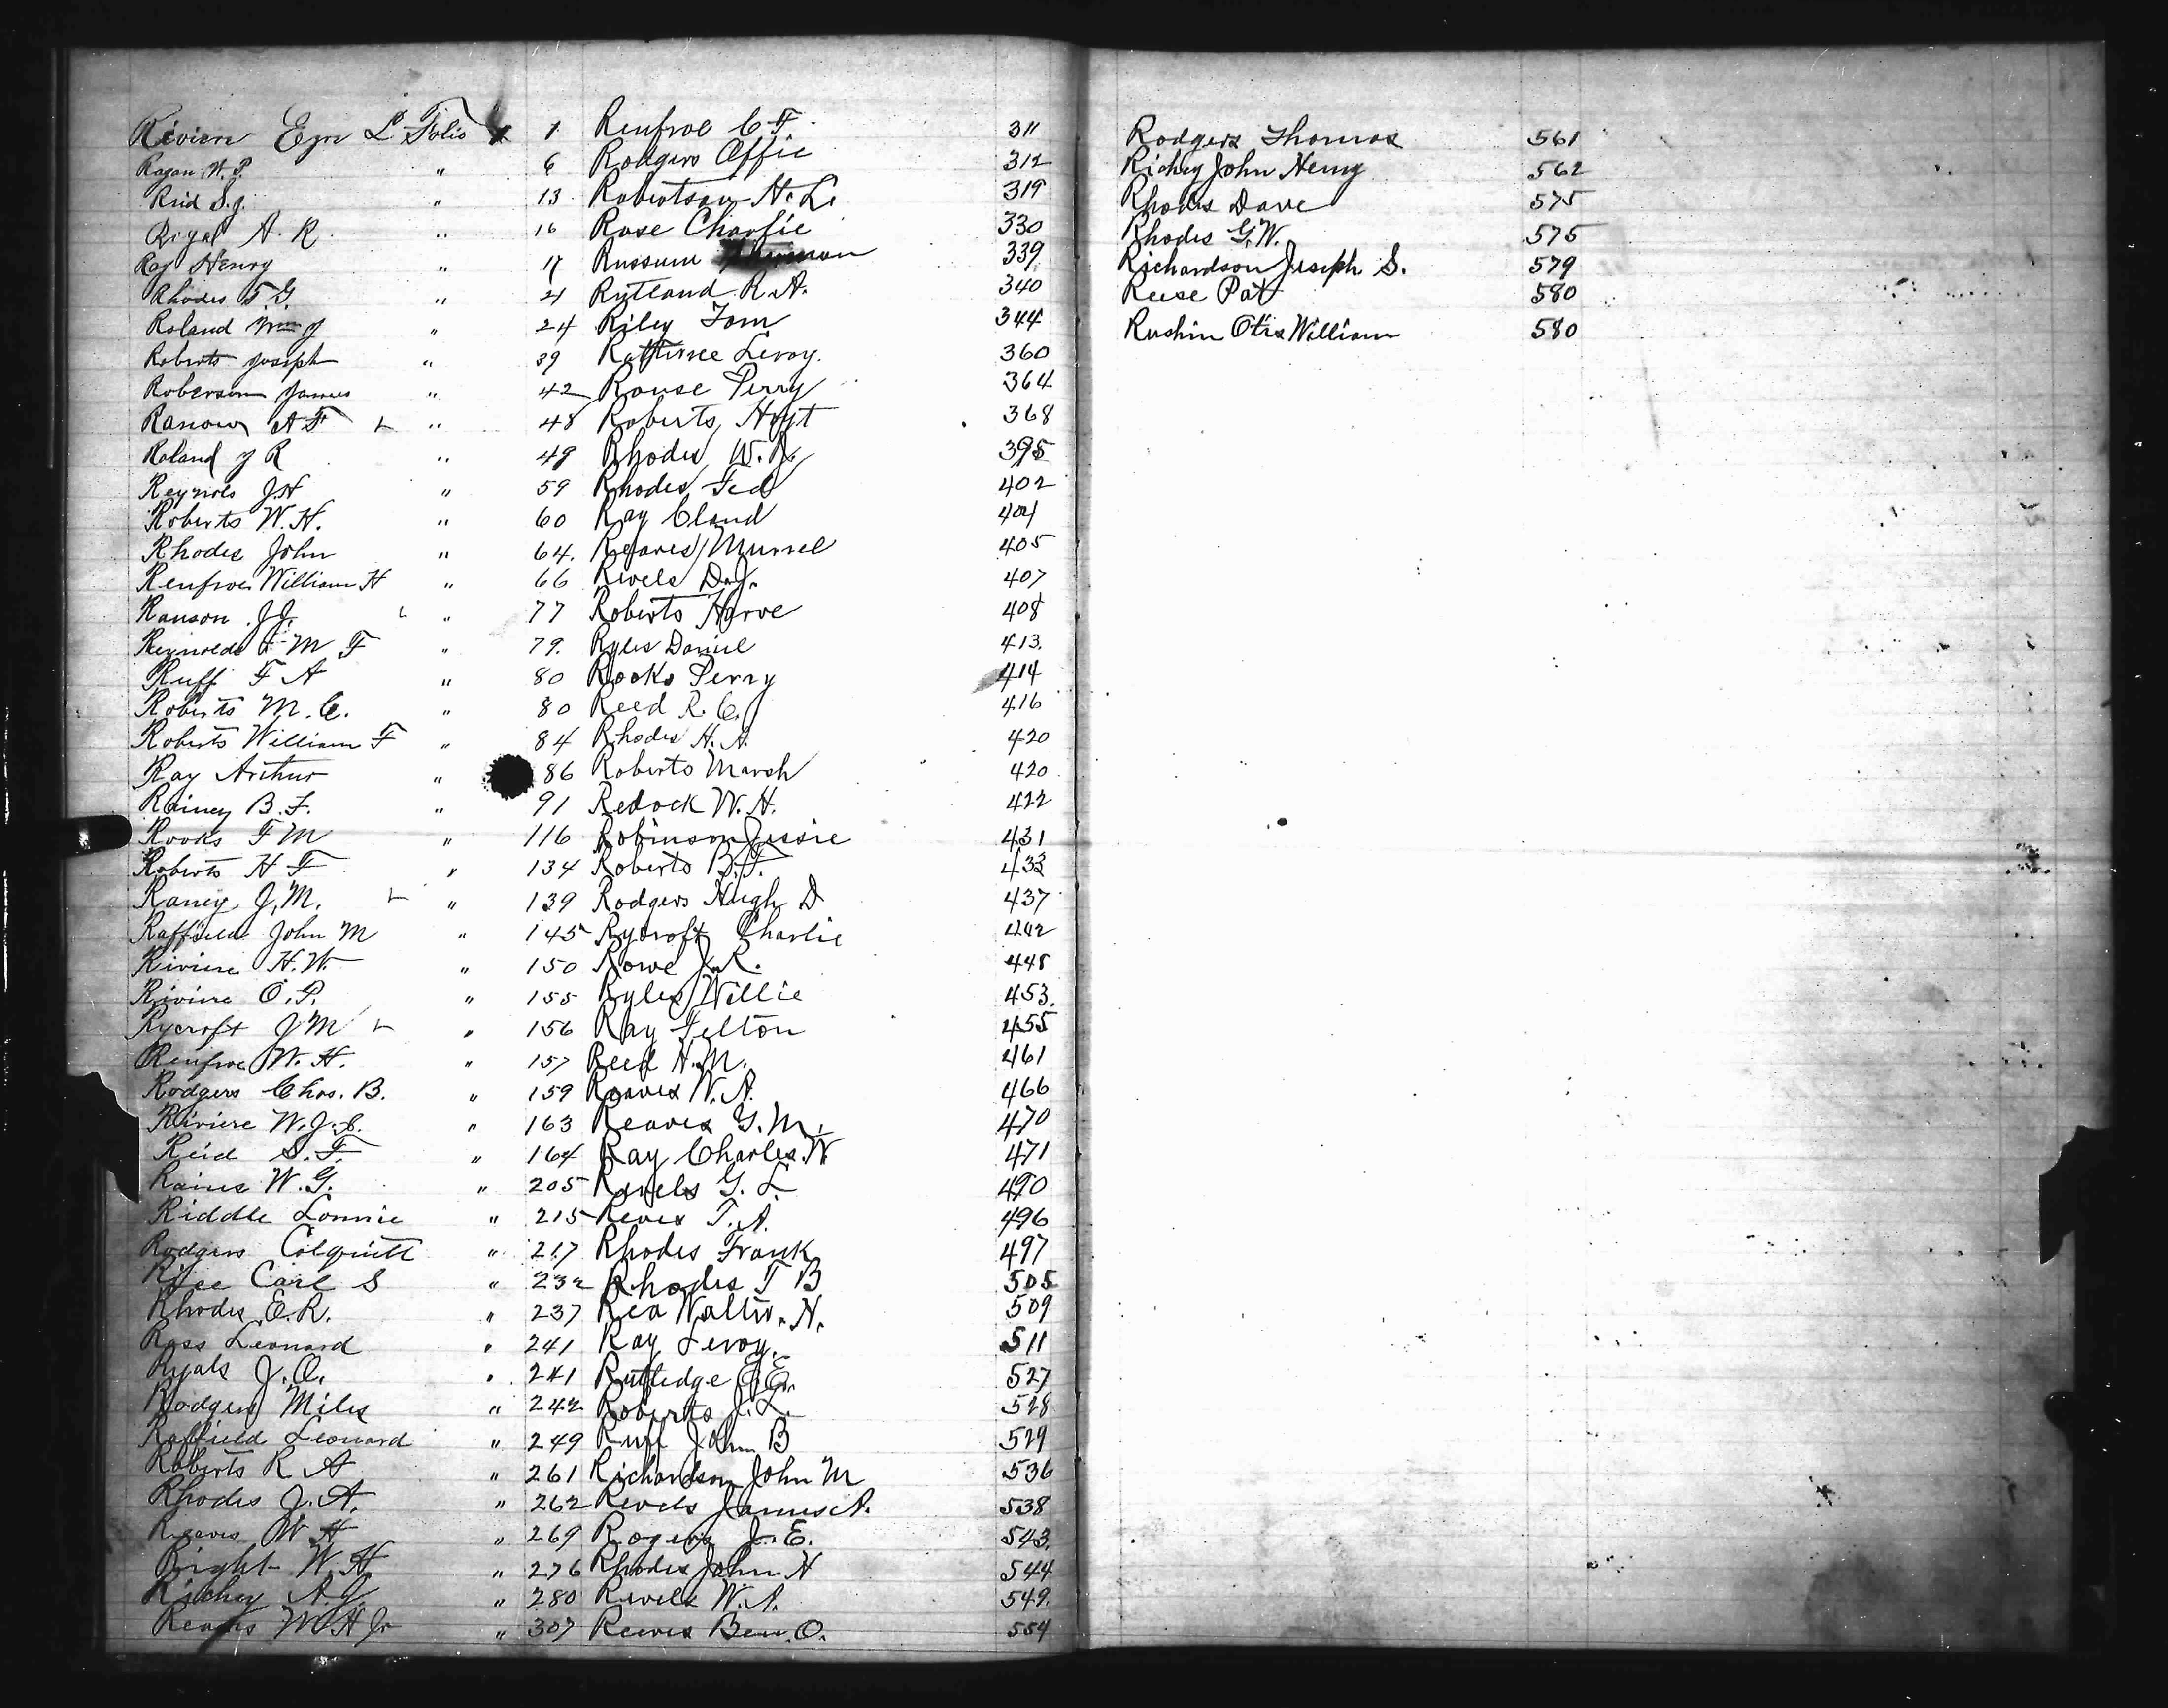 Riviere Ezn L Folio 1
Ragan W. P. " 6
Reid S. J. " 13
Rigal A. R. " 16
Ray Henry " 17
Rhodes T. G. " 21
Roland Wm J " 24
Roberts Joseph " 39
Roberson James " 42
Ranow A F " 48
Roland J R " 49
Reynols J H " 59
Roberts W. H. " 60
Rhodes John " 64.
Renfroe William H " 66
Ranson J J. " 77
Reynolds F M F " 79.
Ruff F A " 80
Roberts M. C. " 80
Roberts William F " 84
Ray Arthur " 86
Rainey B. F. " 91
Rooks F M " 116
Roberts H F " 134
Raney J. M. " 139
Raffield John M " 145
Riviere H. W. " 150
Riviere O. P. " 155
Rycroft J M " 156
Renfroe W. H. " 157
Rodgers Chas. B. " 159
Riviere W. J. S. " 163
Reid S. F. " 164
Raines W. G. " 205
Riddle Lonnie " 215
Rodgers Colquitt " 217
Rice Carl S " 232
Rhodes E. R. " 237
Ross Leonard " 241
Ryals J. O. " 241
Rodgers Miles " 242
Raffield Leonard " 249
Roberts R A " 261
Rhodes J. A. " 262
Reaves W H " 269
Right W. H " 276
Richey A. G. " 280
Reaves W H Jr " 307
Renfroe C. F. 311
Rodgers Offie 312
Robertson H. L. 319
Rose Charlie 330
Russum 339
Rutland R. A. 340
Riley Tom 344
Rattiree Leroy. 360
Rouse Perry 364
Roberts, Hoyt 368
Rhodes, W. R. 395
Rhodes, Ted 402
Ray Claud 404
Reaves Murrel 405
Revels D. J. 407
Roberts Harve 408
Ryles Daniel 413.
Rooks Perry 414
Reed R. C. 416
Rhodes H. A. 420
Roberts Marsh 420
Redock W. H. 422
Robinson Jessie 431
Roberts B. F. 433
Rodgers Hugh D 437
Rycroft Charlie 442
Rowe J. R. 448
Ryles Willie 453.
Ray Felton 455
Reed H. M. 461
Reaves W. A. 466
Reaves G. M. 470
Ray Charles. W 471
Revels G. L. 490
Reves T. A. 496
Rhodes Frank 497
Rhodes T B 505
Rea Walter. H. 509
Ray Leroy. 511
Rutledge E. E. 527
Roberts J. L. 528
Ruff John B 529
Richardson John M 536
Revels James A. 538
Rogers J. E. 543.
Rhodes John H 544
Revels W. A. 549.
Reeves Ben. O. 554
Rodgers Thomas 561
Richey John Henry 562
Rhodes Dave 575
Rhodes G. W. 575
Richardson Joseph S. 579
Reese Pat 580
Rushin Otis William 580